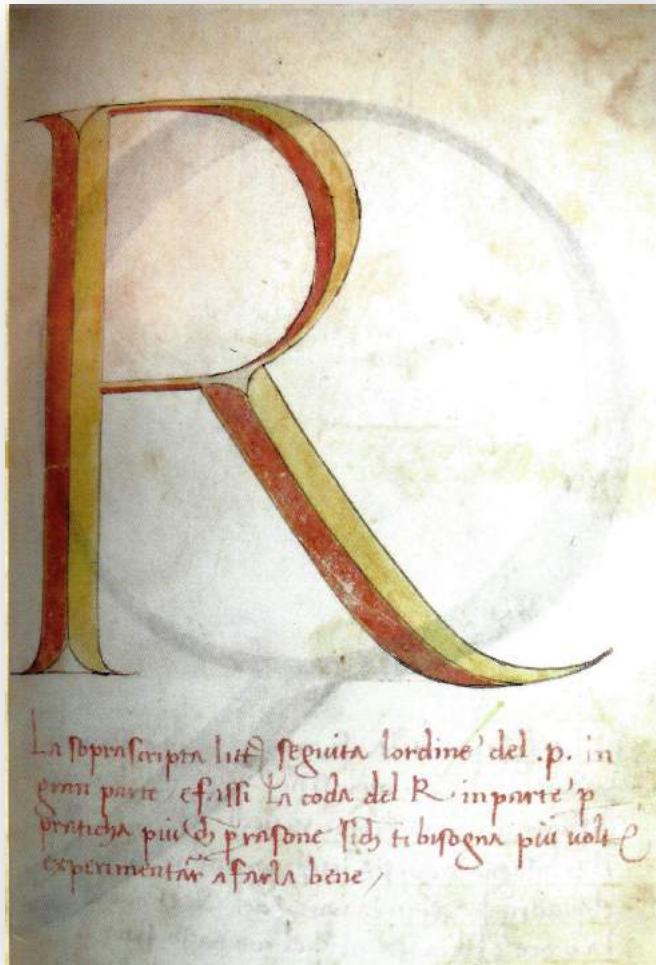 R
La soprascripta litt seguita lordine del .p. in
gran parte e fassi la coda del R in parte p
praticha piu ch p rasone sich ti bisogna piu uolte
experimentar a farla bene